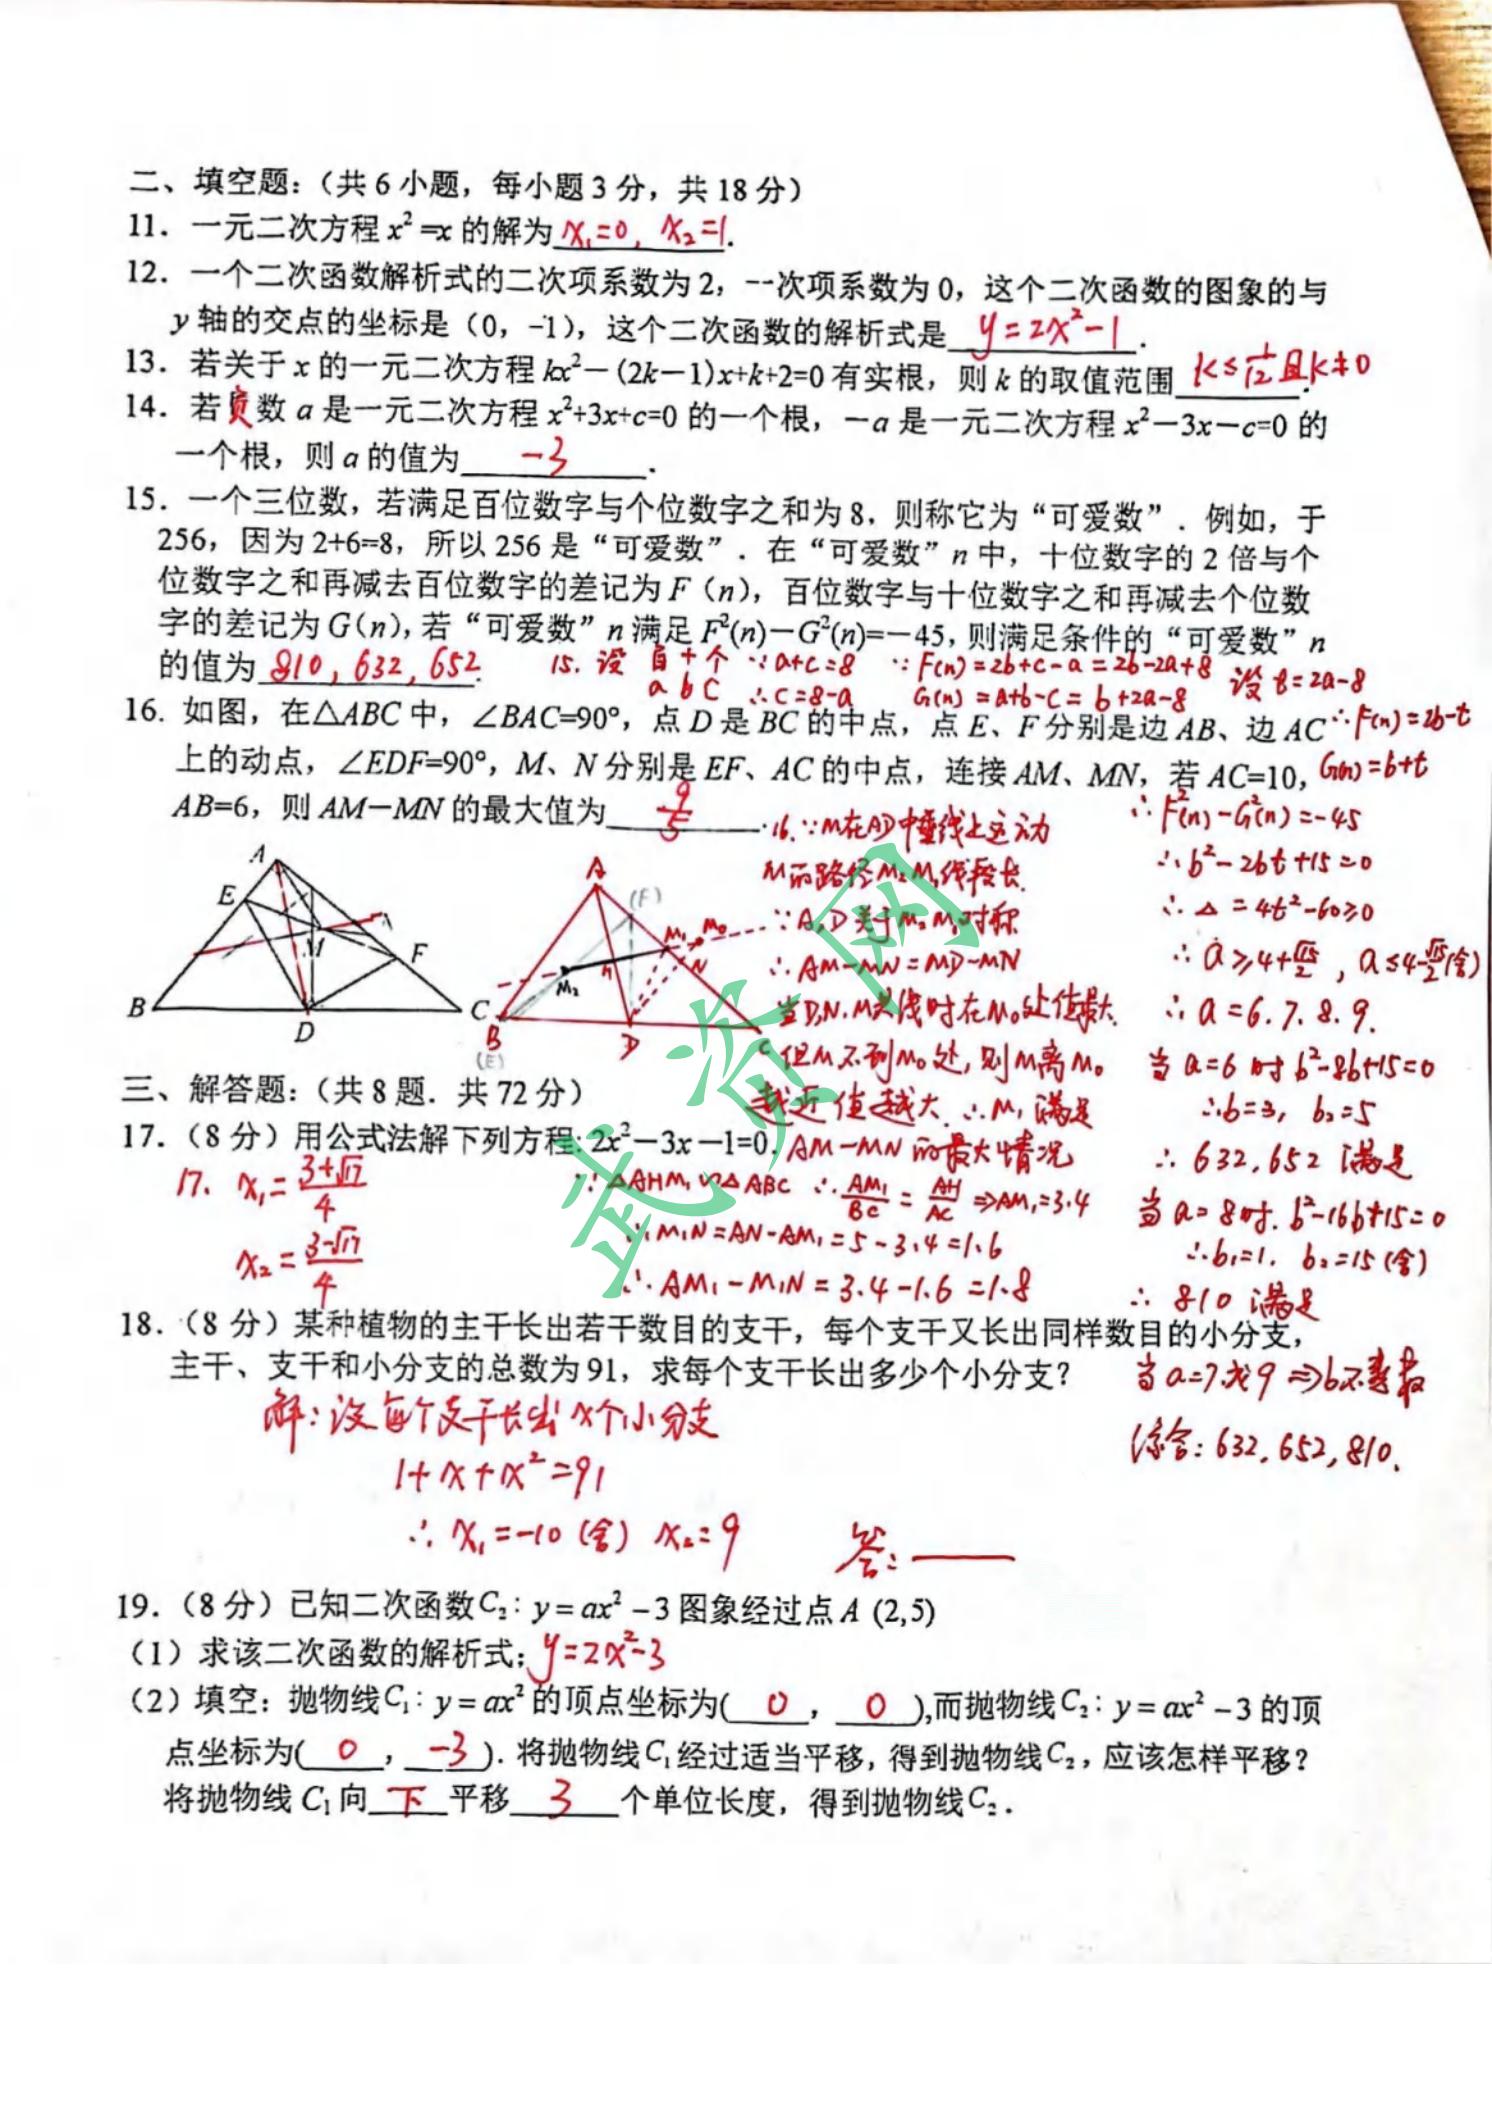 二、填空题:(共6小题,每小题3分,共18分)
11. 一元二次方程 x²=x 的解为 x₁=0, x₂=1.
12. 一个二次函数解析式的二次项系数为2,一次项系数为0,这个二次函数的图象的与
y轴的交点的坐标是(0,-1),这个二次函数的解析式是 y=2x²-1.
13. 若关于x的一元二次方程 kx²-(2k-1)x+k+2=0 有实根,则k的取值范围 k≤1/12且k≠0.
14. 若负数a是一元二次方程 x²+3x+c=0 的一个根,-a是一元二次方程 x²-3x-c=0 的
一个根,则a的值为 -3.
15. 一个三位数,若满足百位数字与个位数字之和为8,则称它为“可爱数”.例如,于
256,因为2+6=8,所以256是“可爱数”.在“可爱数”n中,十位数字的2倍与个
位数字之和再减去百位数字的差记为F(n),百位数字与十位数字之和再减去个位数
字的差记为G(n),若“可爱数”n满足F²(n)-G²(n)=-45,则满足条件的“可爱数”n
的值为 810,632,652.
15. 设 百 十 个 ∵a+c=8 ∵F(n)=2b+c-a=2b-2a+8 设t=2a-8
a b c ∴c=8-a G(n)=a+b-c=b+2a-8
∴F(n)=2b-t
G(n)=b+t
∴F²(n)-G²(n)=-45
∴b²-2bt+15=0
∴△=4t²-60≥0
∴a≥4+√15/2,a≤4-√15/2(舍)
∴a=6.7.8.9.
当a=6时 b²-8b+15=0
∴b=3, b₂=5
∴632,652满足
当a=8时. b²-16b+15=0
∴b₁=1. b₂=15(舍)
∴810满足
当a=7或9⇒b不是整数
综合:632,652,810.
16. 如图,在△ABC中,∠BAC=90°,点D是BC的中点,点E、F分别是边AB、边AC
上的动点,∠EDF=90°,M、N分别是EF、AC的中点,连接AM、MN,若AC=10,
AB=6,则AM-MN的最大值为 9/5.
16.∵M在AD中垂线上运动
M的路径M₂M₁线段长.
∵A,D关于M₂M₁对称
∴AM-MN=MD-MN
当D,N,M共线时在M₀处值最大.
但M不到M₀处,则M离M₀
越近值越大.∴M₁满足
AM-MN的最大情况
∵△AHM₁∽△ABC ∴AM₁/BC=AH/AC⇒AM₁=3.4
∴M₁N=AN-AM₁=5-3.4=1.6
∴AM₁-M₁N=3.4-1.6=1.8
A
E
M
F
B
D
C
A
(F)
M₁
M₀
N
M₂
H
B
(E)
D
C
三、解答题:(共8题.共72分)
17.(8分)用公式法解下列方程:2x²-3x-1=0.
17. x₁=(3+√17)/4
x₂=(3-√17)/4
18.(8分)某种植物的主干长出若干数目的支干,每个支干又长出同样数目的小分支,
主干、支干和小分支的总数为91,求每个支干长出多少个小分支?
解:设每个支干长出x个小分支
1+x+x²=91
∴x₁=-10(舍) x₂=9 答:
19.(8分)已知二次函数C₂:y=ax²-3图象经过点A (2,5)
(1)求该二次函数的解析式; y=2x²-3
(2)填空:抛物线C₁:y=ax²的顶点坐标为( 0 , 0 ),而抛物线C₂:y=ax²-3的顶
点坐标为( 0 , -3 ).将抛物线C₁经过适当平移,得到抛物线C₂,应该怎样平移?
将抛物线C₁向 下 平移 3 个单位长度,得到抛物线C₂.
武资网